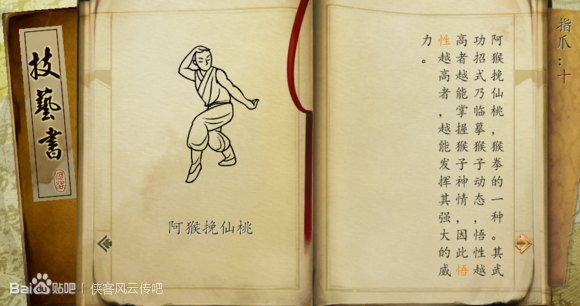 技藝書
阿猴挽仙桃
指爪：十
阿猴挽仙桃，猴拳的一种。其武
功招式乃临摹猴子动态，悟性越
高者越能掌握猴子神情，因此悟
性越高者，越能发挥其强大的威
力。
Bai du 贴吧 | 侠客风云传吧